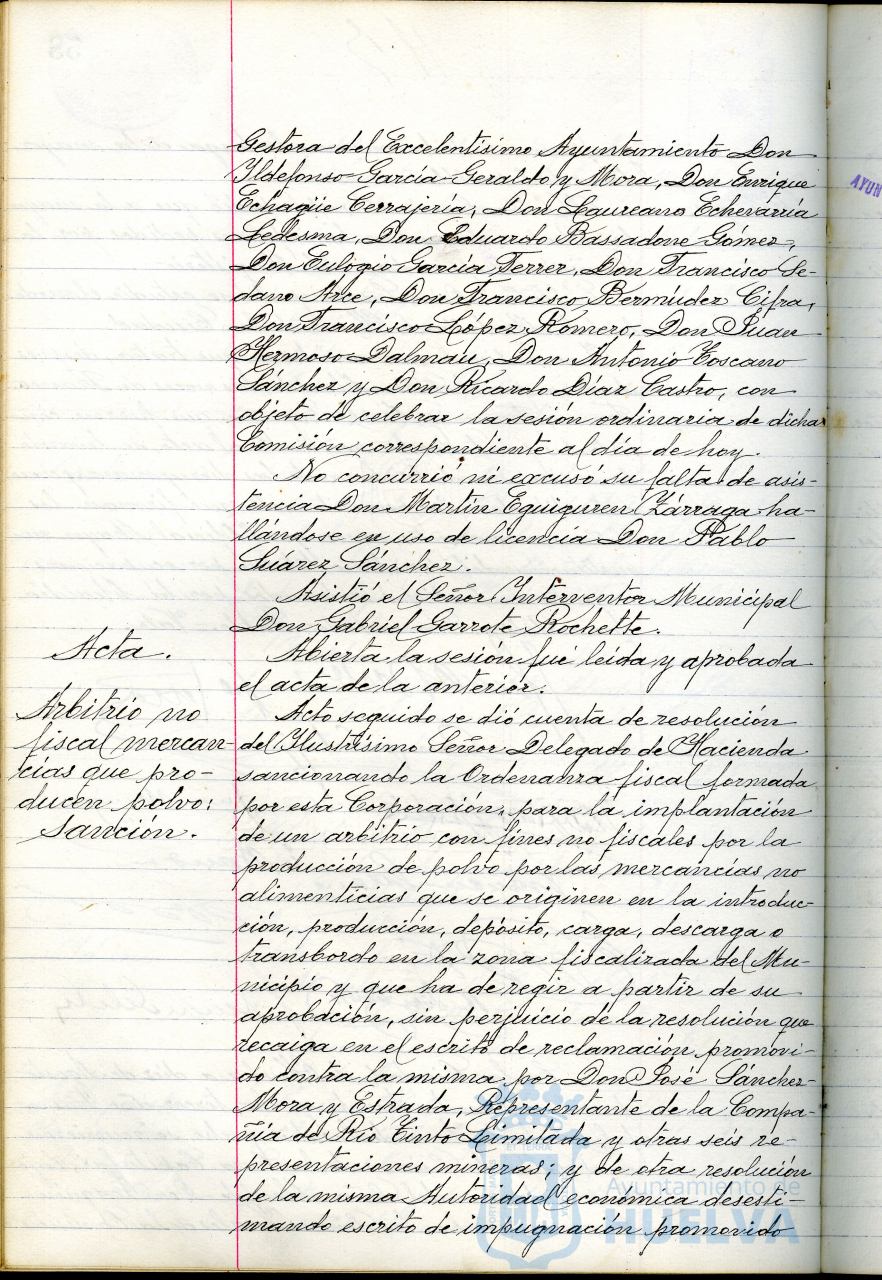 Gestora del Excelentísimo Ayuntamiento Don
Ildefonso García Geraldo y Mora, Don Enrique
Echagüe Cerrajería, Don Laureano Echevarría
Ledesma, Don Eduardo Bassadone Gómez,
Don Eulogio García Ferrer, Don Francisco Se-
dano Arce, Don Francisco Bermúdez Cifra,
Don Francisco López Romero, Don Juan
Hermoso Dalmau, Don Antonio Toscano
Sánchez y Don Ricardo Díaz Castro, con
objeto de celebrar la sesión ordinaria de dicha
Comisión correspondiente al día de hoy.
No concurrió ni excusó su falta de asis-
tencia Don Martín Eguiguren Zárraga ha-
llándose en uso de licencia Don Pablo
Suárez Sánchez.
Asistió el Señor Interventor Municipal
Don Gabriel Garrote Rochette.
Acta.
Abierta la sesión fué leída y aprobada
el acta de la anterior.
Arbitrio no
fiscal mercan-
cías que pro-
ducen polvo:
Sanción.
Acto seguido se dió cuenta de resolución
del Ilustrísimo Señor Delegado de Hacienda
sancionando la Ordenanza fiscal formada
por esta Corporación, para la implantación
de un arbitrio con fines no fiscales por la
producción de polvo por las mercancías no
alimenticias que se originen en la introduc-
ción, producción, depósito, carga, descarga o
transbordo en la zona fiscalizada del Mu-
nicipio y que ha de regir a partir de su
aprobación, sin perjuicio de la resolución que
recaiga en el escrito de reclamación promovi-
do contra la misma por Don José Sánchez-
Mora y Estrada, Representante de la Compa-
ñía de Río Tinto Limitada y otras seis re-
presentaciones mineras; y de otra resolución
de la misma Autoridad económica desesti-
mando escrito de impugnación promovido
AYUN
Ayuntamiento de
HUELVA